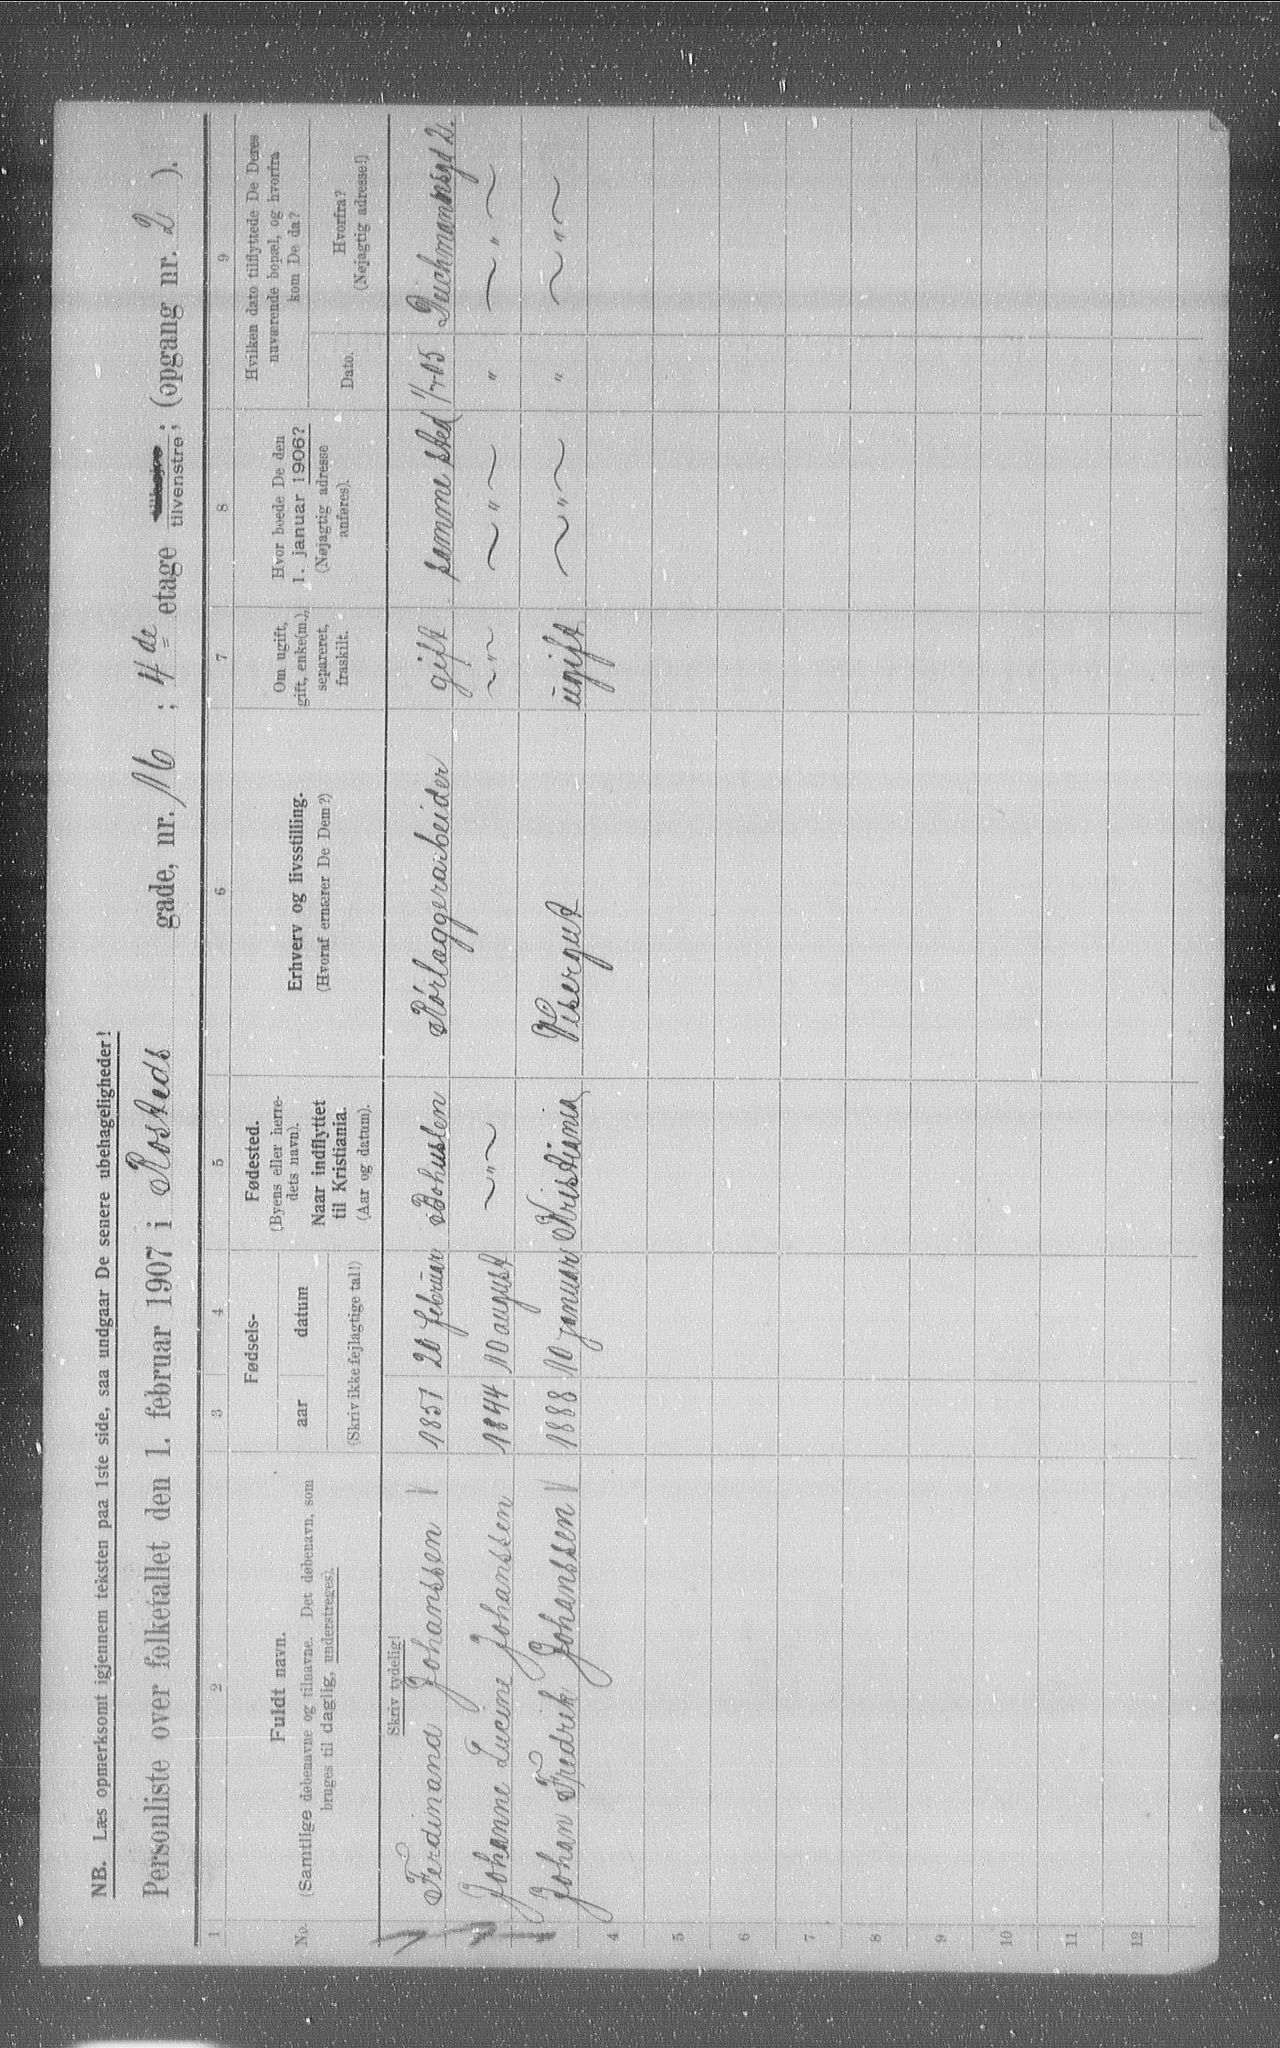 NB. Læs opmerksomt igjennem teksten paa 1ste side, saa undgaar De senere ubehageligheder!
Personliste over folketallet den 1. februar 1907 i Rosteds gade, nr. 16 ; 4de etage tilvenstre; (opgang nr. 2 ).
1 2 3 4 5 6 7 8 9
No.
Fuldt navn.
(Samtlige døbenavne og tilnavne. Det døbenavn, som
bruges til daglig, understreges).
Fødsels-
aar datum
(Skriv ikke fejlagtige tal!)
Fødested.
(Byens eller herre-
dets navn).
Naar indflyttet
til Kristiania.
(Aar og datum).
Erhverv og livsstilling.
(Hvoraf ernærer De Dem?)
Om ugift,
gift, enke(m.),
separeret,
fraskilt.
Hvor boede De den
1. januar 1906?
(Nøjagtig adresse
anføres).
Hvilken dato tilflyttede De Deres
nuværende bopæl, og hvorfra
kom De da?
Dato.
Hvorfra?
(Nøjagtig adresse!)
Skriv tydelig!
Ferdinand Johanssen V 1851 20 februar Bohuslen Rørlæggerarbeider gift samme sted Deichmannsgd 2.
Johanne Lucine Johanssen 1844 10 august ~"~ ~"~ ~"~ " ~"~
Johan Fredrik Johanssen V 1888 10 januar Kristiania Visergut ugift ~"~ " ~"~
4
5
6
7
8
9
10
11
12